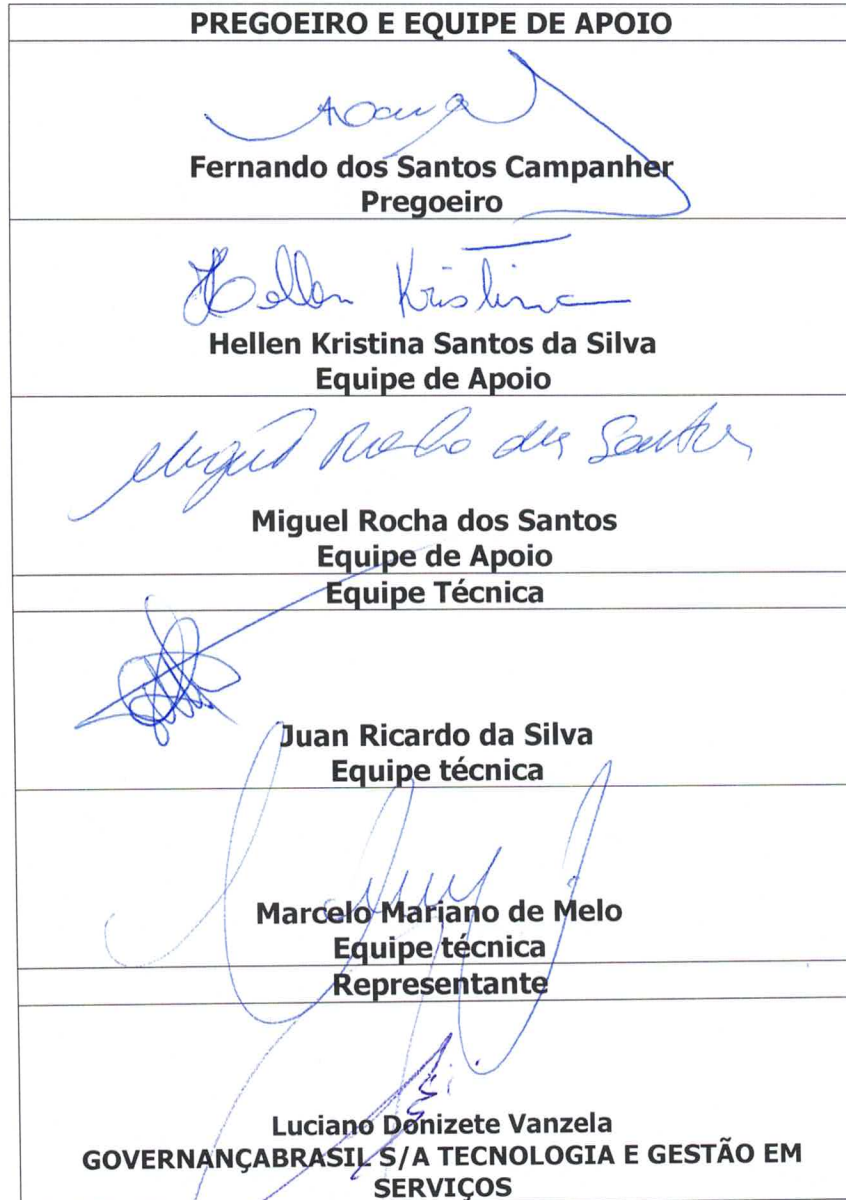 PREGOEIRO E EQUIPE DE APOIO
Fernando dos Santos Campanher
Pregoeiro
Hellen Kristina
Hellen Kristina Santos da Silva
Equipe de Apoio
Miguel Rocha dos Santos
Miguel Rocha dos Santos
Equipe de Apoio
Equipe Técnica
Juan Ricardo da Silva
Equipe técnica
Marcelo Mariano de Melo
Equipe técnica
Representante
Luciano Donizete Vanzela
GOVERNANÇABRASIL S/A TECNOLOGIA E GESTÃO EM
SERVIÇOS